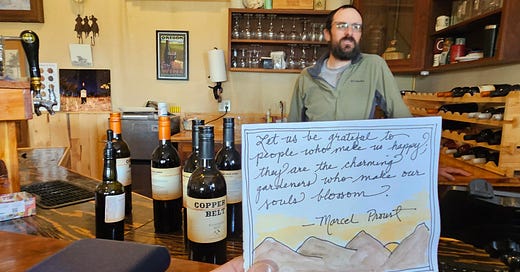 OREGON
COPPER
BELT
Let us be grateful to
people who make us happy;
they are the charming
gardeners who make our
souls blossom.
—Marcel Proust